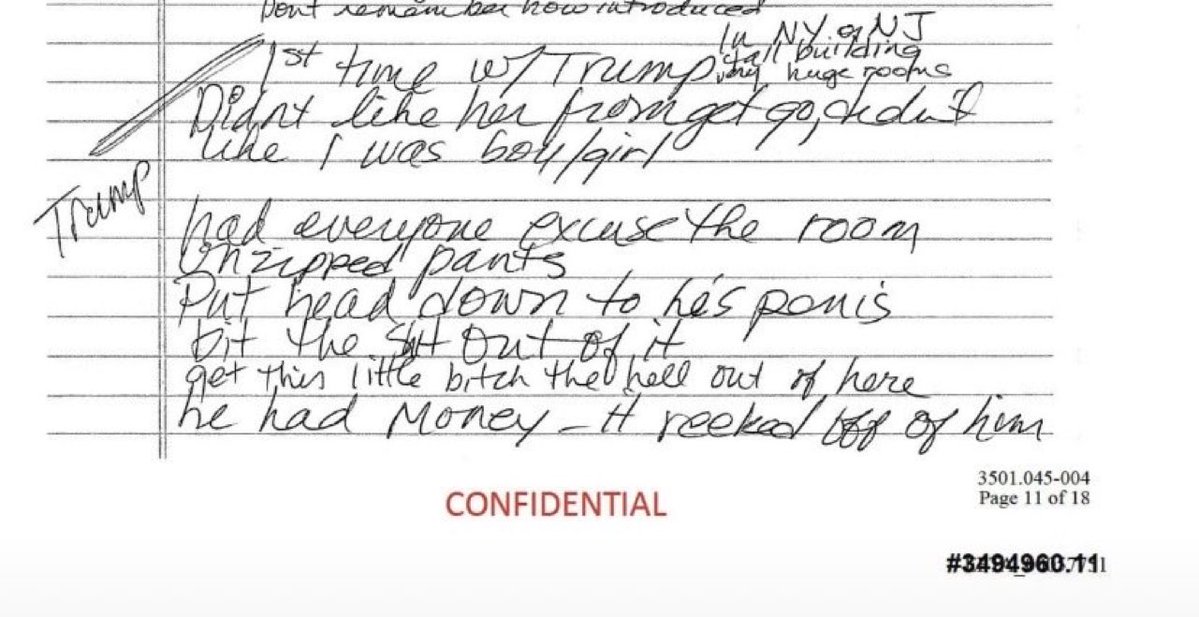 Dont remember how introduced
In NY or NJ
1st time w/ Trump, tall building
very huge rooms
Didnt like her from get go, didnt
like I was boy/girl
Trump
had everyone excuse the room
Unzipped pants
Put head down to his penis
bit the shit out of it
get this little bitch the hell out of here
he had Money - It reeked off of him
CONFIDENTIAL
3501.045-004
Page 11 of 18
#3494960.11